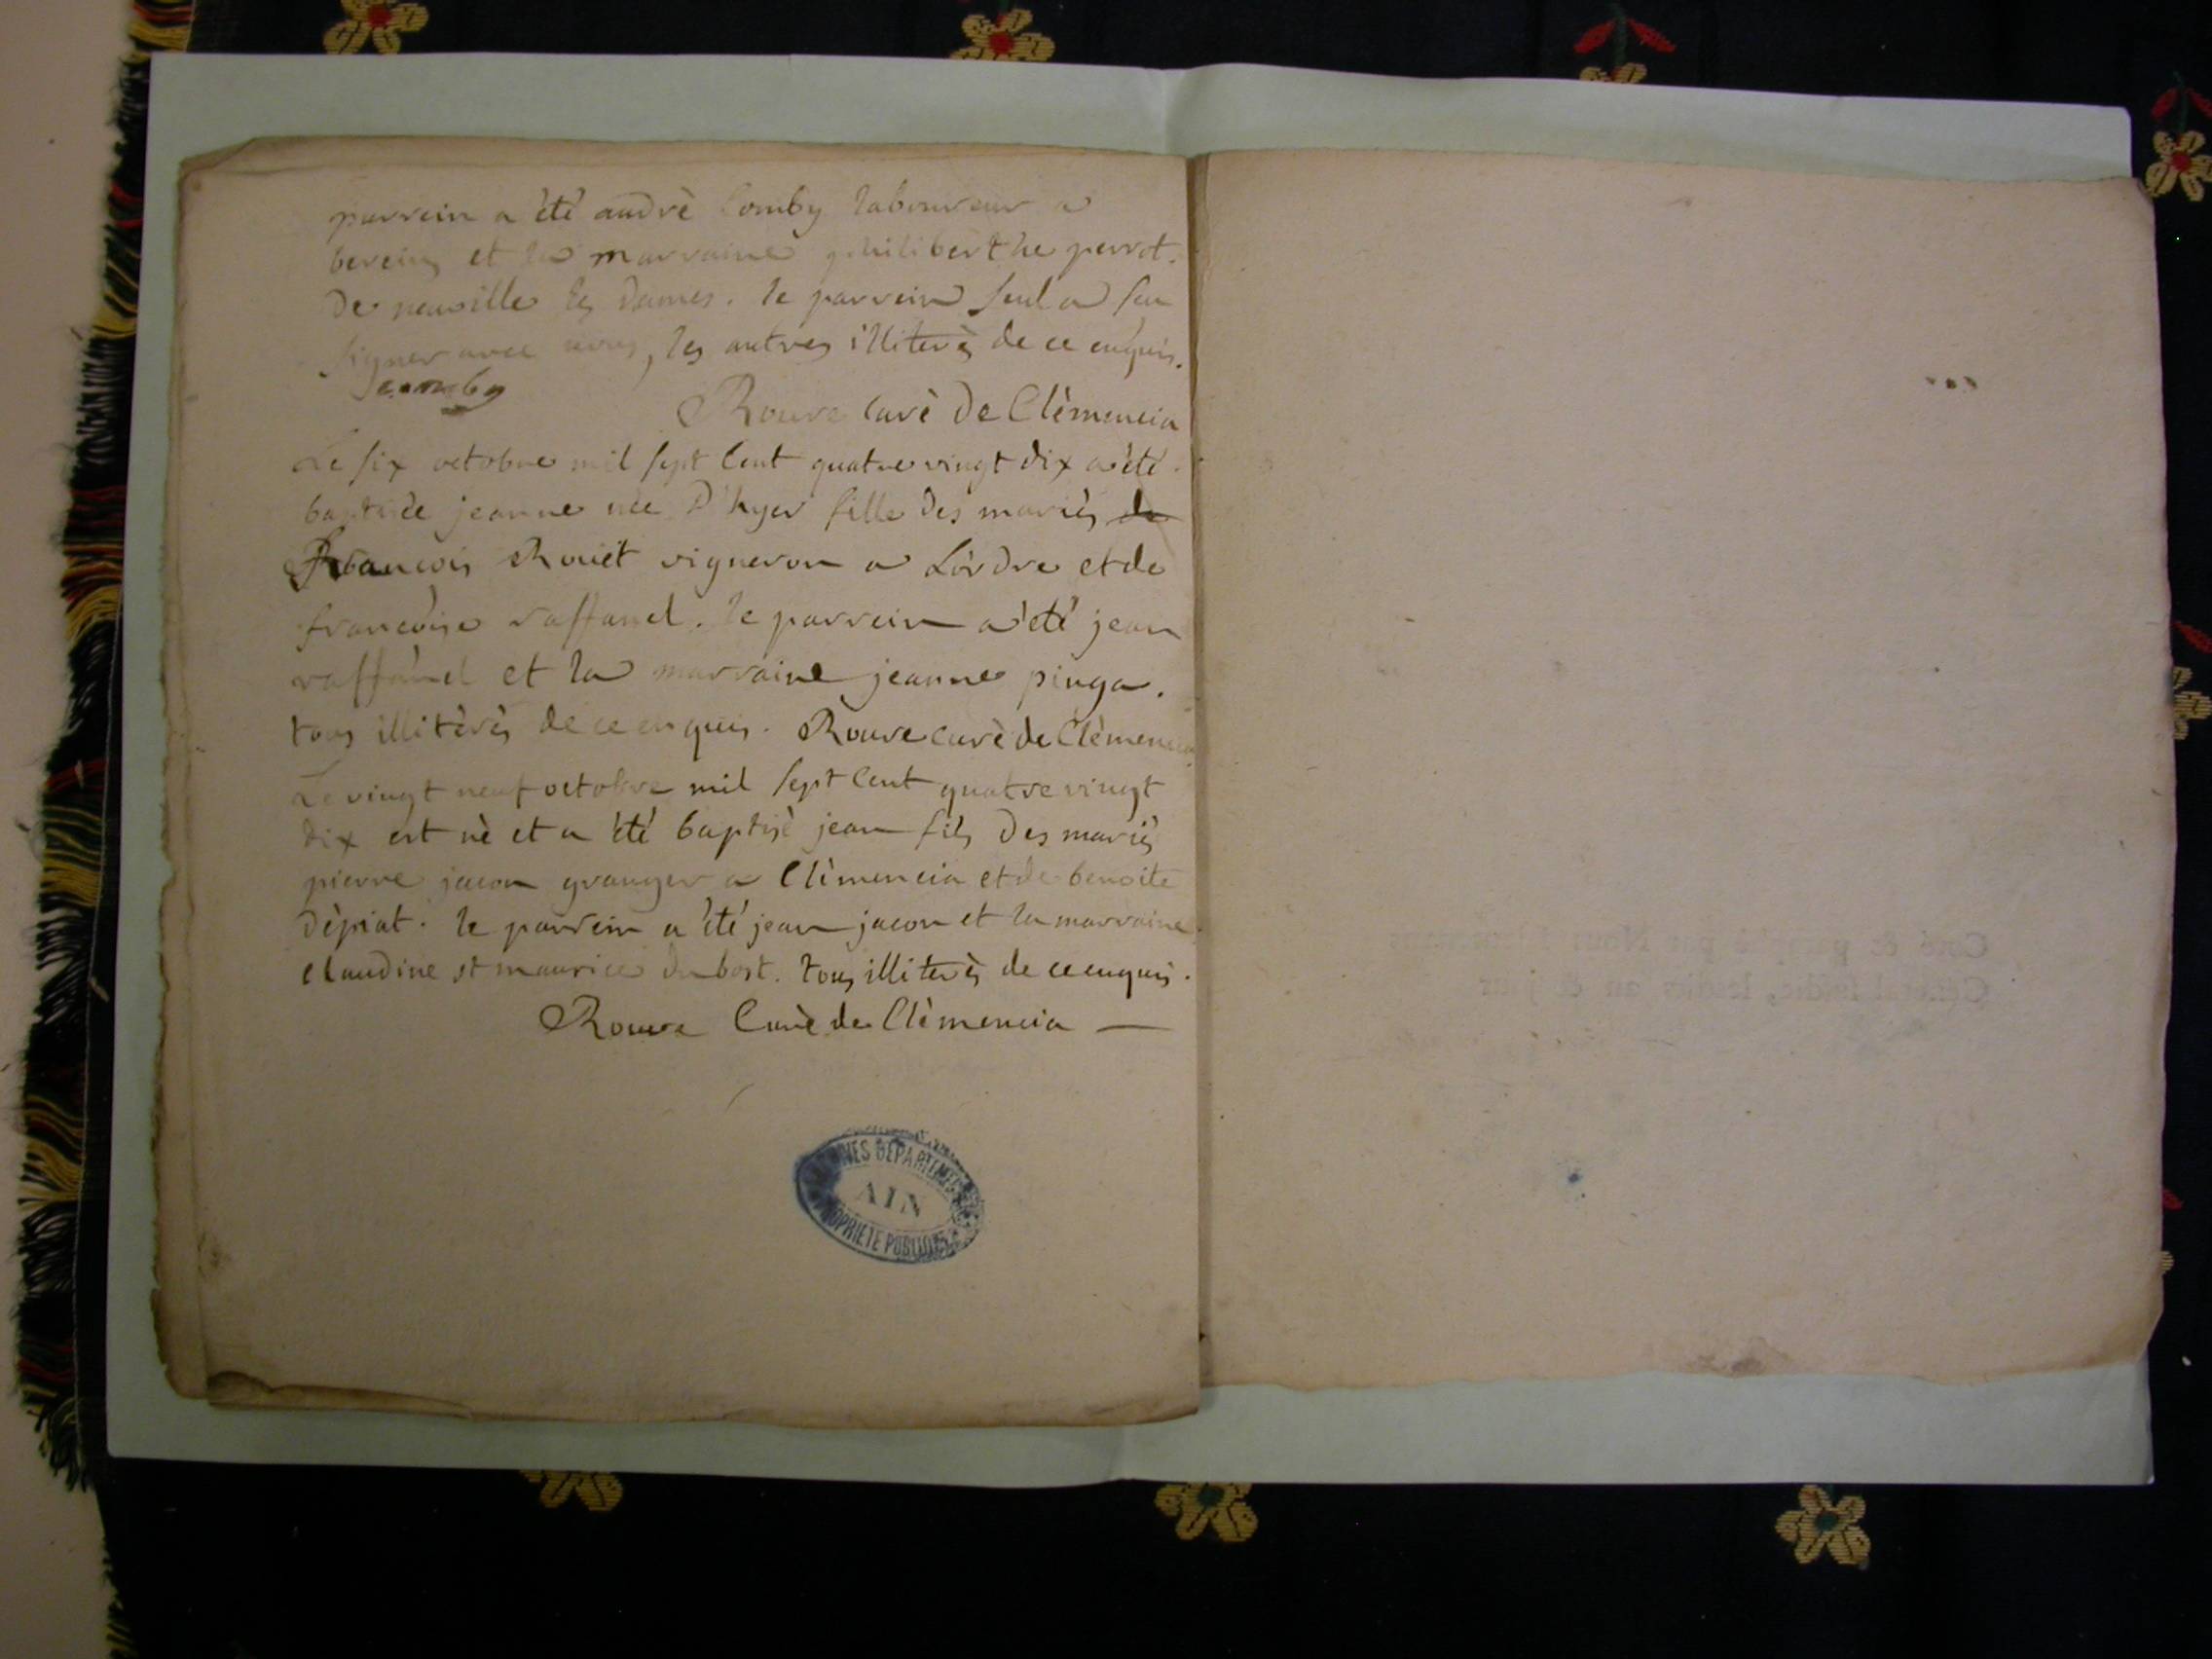 parrein a été andrè Comby laboureur a
bereins et la marraine philiberthe perrot.
De neuville les Dames. le parrein seul a seu
signer avec nous, les autres illiterès de ce enquis.
comby
Rouve curè de Clèmencia
Le six octobre mil sept cent quatre vingt dix a été
baptisée jeanne née D'hyer fille des mariès de
francois Rouët vigneron a Lordre et de
francoise raffanel. le parrein a été jean
raffanel et la marraine jeanne pinga.
tous illitèrès de ce enquis. Rouve curè de Clèmencia
Le vingt neuf octobre mil sept cent quatre vingt
dix est nè et a été baptisè jean fils des mariès
pierre jacon granger a Clèmencia et de benoite
Dèpiat. le parrein a été jean jacon et la marraine
claudine st maurice du bost. tous illiterès de ce enquis.
Rouve Curè de Clèmencia —
ARCHIVES DEPARTEMENTALES
AIN
PROPRIETE PUBLIQUE
Coté & paraphé par Nous Lieutenant
Général susdit, lesdits an & jour